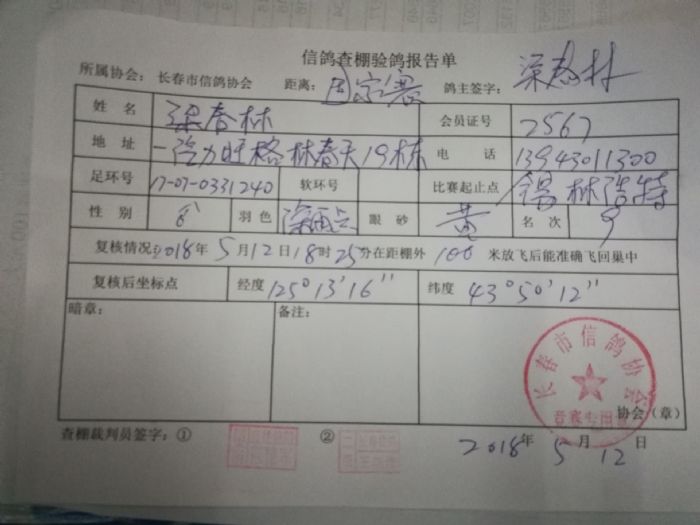 信鸽查棚验鸽报告单
所属协会： 长春市信鸽协会 距离： 鸽主签字： 梁春林
姓 名 梁春林 会员证号 2567
地 址 一汽力旺格林春天19栋 电 话 13943011300
足环号 17-07-0331240 软环号 比赛起止点 锡林浩特
性 别 羽色 深雨点 眼砂 黄 名 次 9
复核情况：2018年 5 月 12 日 18 时 25 分在距棚外 100 米放飞后能准确飞回巢中
复核后坐标点 经度 125°13'16" 纬度 43°50'12"
暗章： 备注：
长春市信鸽协会
竞赛专用章
协会（章）
查棚裁判员签字：① ②
2018 年 5 月 12 日